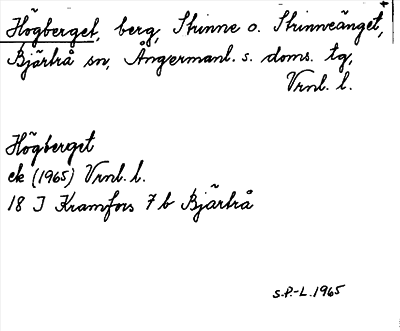 Högberget, berg, Strinne o. Strinneänget,
Bjärtrå sn, Ångermanl. s. doms. tg,
Vrnl. l.
Högberget
ek (1965) Vrnl. l.
18 J Kramfors 7 b Bjärtrå
S.P.-L. 1965